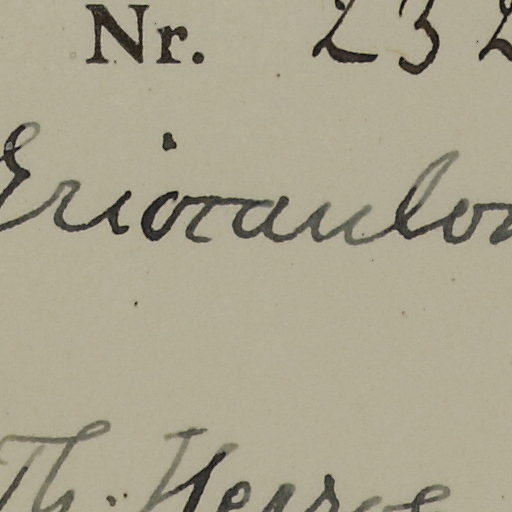 Nr. 232
Eriocaulon
Th. Herzog